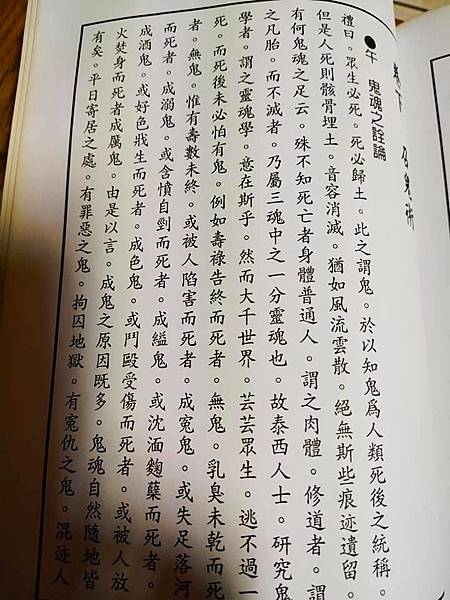 卷下 召鬼術
●午 鬼魂之詮論
禮曰。眾生必死。死必歸土。此之謂鬼。於以知鬼爲人類死後之統稱。
但是人死則骸骨埋土。音容消滅。猶如風流雲散。絕無斯些痕迹遺留。
有何鬼魂之足云。殊不知死亡者身體普通人。謂之肉體。修道者。謂
之凡胎。而不滅者。乃屬三魂中之一分靈魂也。故泰西人士。研究鬼
學者。謂之靈魂學。意在斯乎。然而大千世界。芸芸眾生。逃不過一
死。而死後未必怕有鬼。例如壽祿告終而死者。無鬼。乳臭未乾而死
者。無鬼。惟有壽數未終。或被人陷害而死者。成冤鬼。或失足落河
而死者。成溺鬼。或含憤自剄而死者。成縊鬼。或沈湎麴蘗而死者。
成酒鬼。或好色戕生而死者。成色鬼。或鬥毆受傷而死者。或被人放
火焚身而死者成厲鬼。由是以言。成鬼之原因既多。鬼魂自然隨地皆
有矣。平日寄居之處。有罪惡之鬼。拘囚地獄。有寃仇之鬼。混迹人